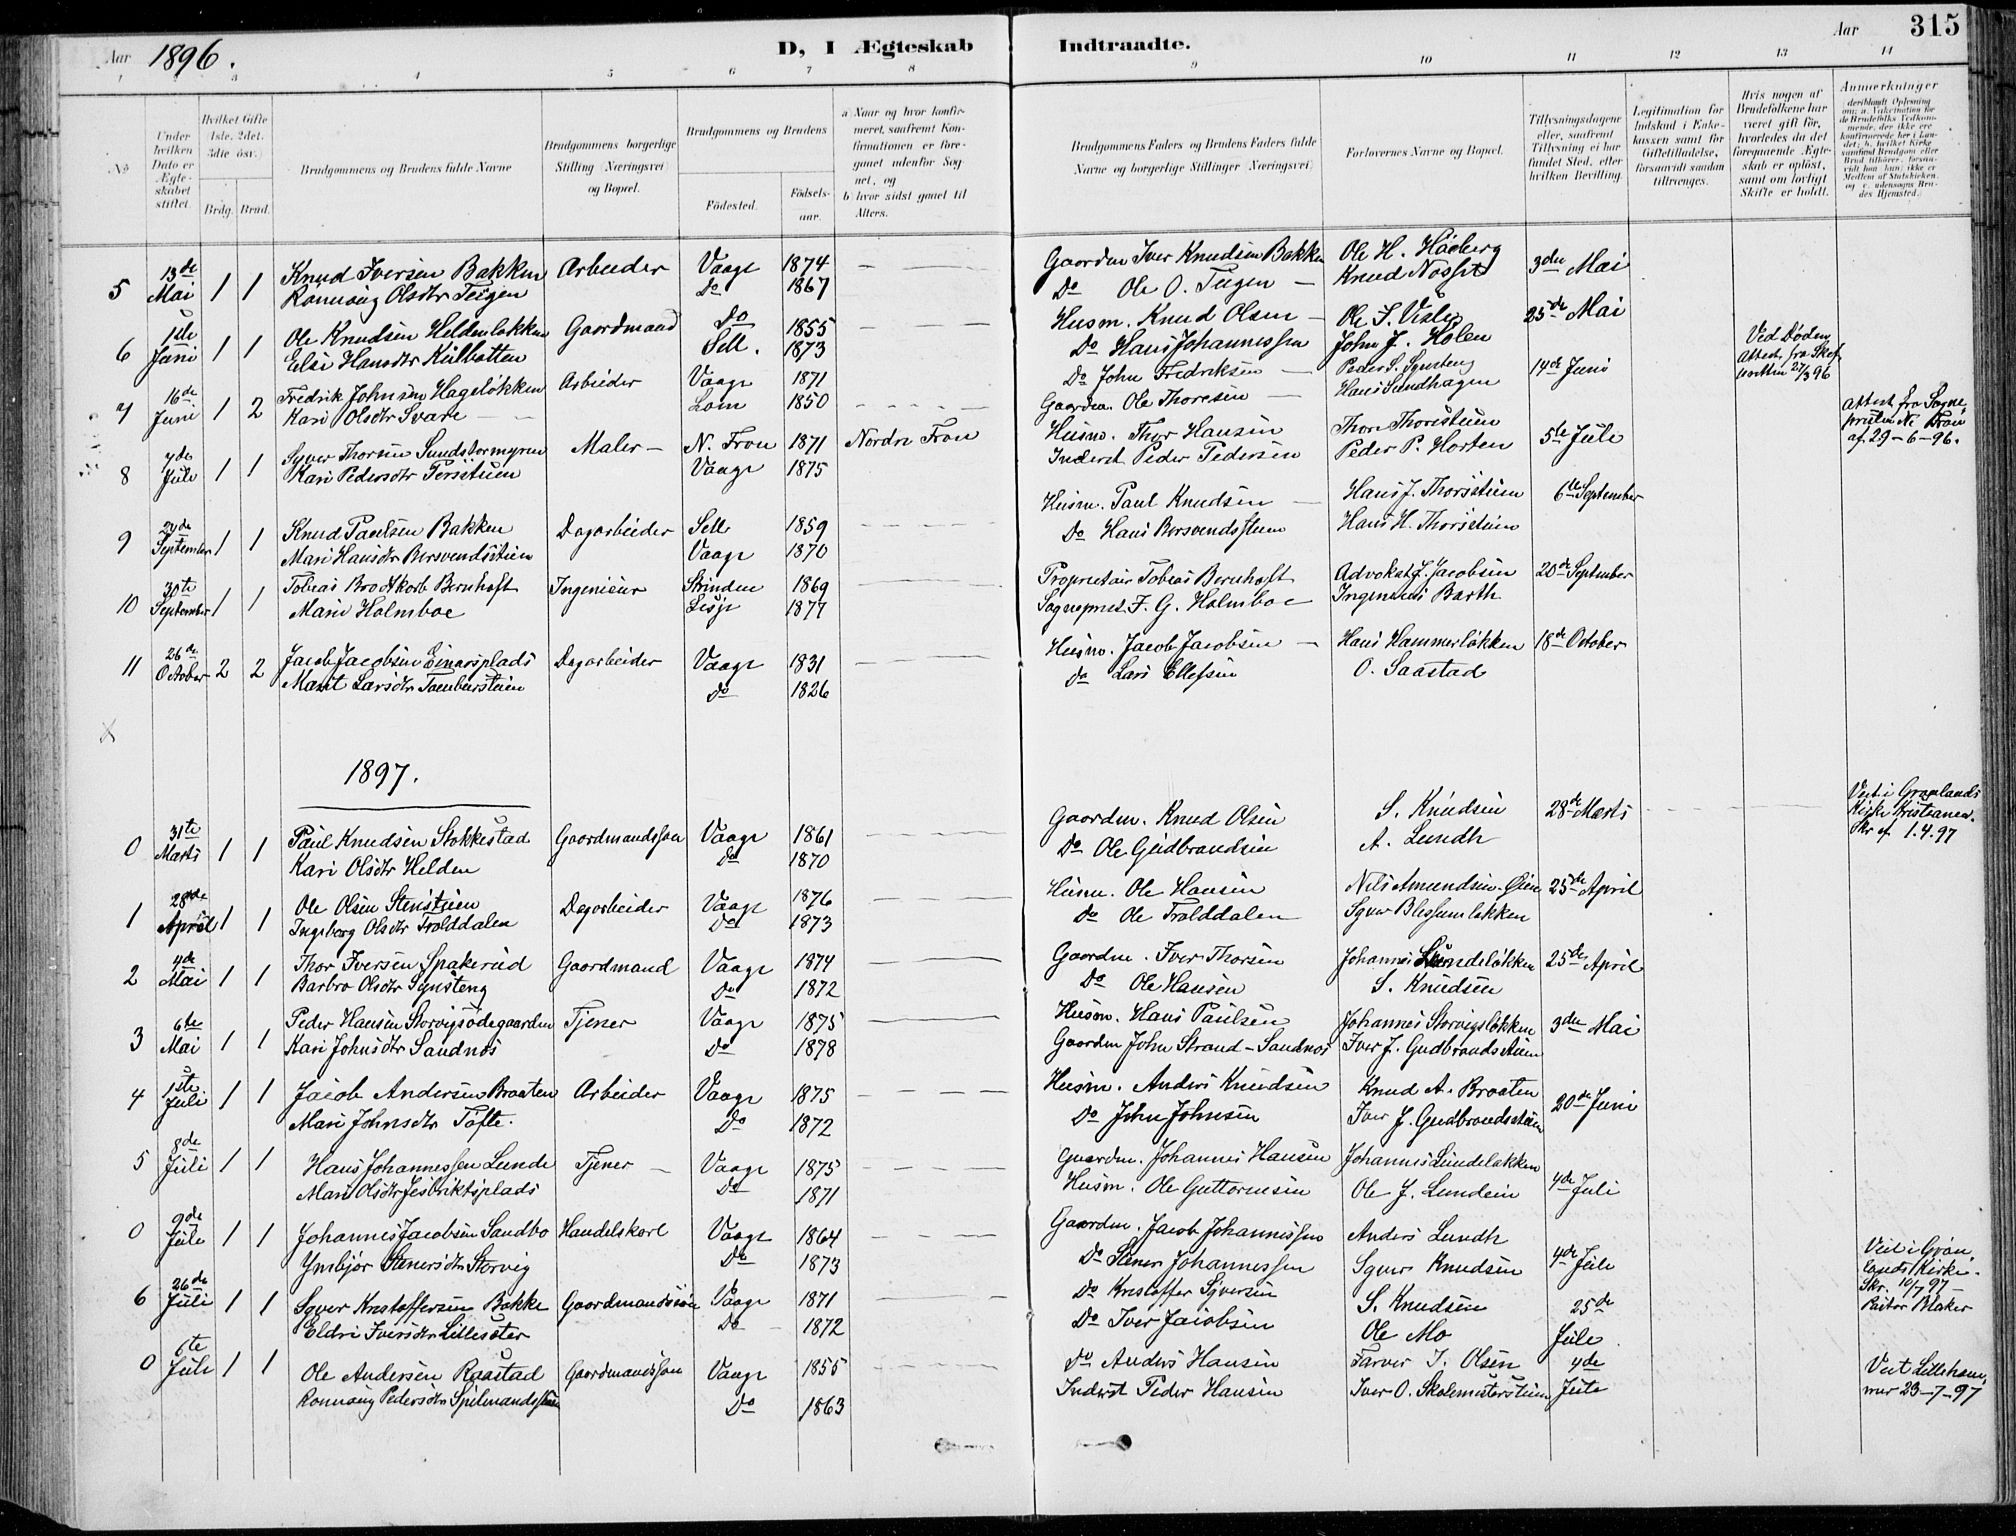 Aar 1896. D, I Ægteskab Indtraadte. Aar 315
1 2 3 4 5 6 7 8 9 10 11 12 13 14
No
Under hvilken Dato er Ægteskabet stiftet.
Hvilket Gifte 1ste, 2det, 3die osv.
Brdg. Brud.
Brudgommens og Brudens fulde Navne
Brudgommens borgerlige Stilling (Næringsvei) og Bopæl.
Brudgommens og Brudens
Fødested. Fødselsaar.
a) Naar og hvor konfirmeret, saafremt Konfirmationen er foregaaet udenfor Sognet, og
b) hvor sidst gaaet til Alters.
Brudgommens Faders og Brudens Faders fulde Navne og borgerlige Stillinger (Næringsvei)
Forlovernes Navne og Bopæl.
Tillysningsdagene eller, saafremt Tillysning ei har fundet Sted, efter hvilken Bevilling.
Legitimation for Indskud i Enkekassen samt for Giftetilladelse, forsaavidt saadan tiltrænges.
Hvis nogen af Brudefolkene har været gift før, hvorledes da det foregaaende Ægteskab er opløst, samt om lovligt Skifte er holdt.
Anmerkninger
5 13de Mai 1 1 Knud Iversen Bakken Arbeider Vaage 1874 Gaardm Iver Knudsen Bakken Ole H. Haaberg 3die Mai
Ronnaug Olsdtr Teigen Do 1867 Do Ole O. Teigen Knud Nosset
6 1ste Juni 1 1 Ole Knudsen Heldenløkken Gaardmand Do 1855 Husm. Knud Olsen Ole I. Visle 25de Mai
Elsi Hansdtr Kulbotten Sell. 1873 Do Hans Johannessen John J. Holen
7 16de Juni 1 2 Fredrik Johnsen Hageløkken Arbeider Vaage 1871 Do John Fredriksen Peder S. Synsteng 14de Juni Ved Døden
Kari Olsdtr Svare Lom 1850 Gaardm. Ole Thoresen Hans Sundhagen Attest fra 27/3 96
8 4de Juli 1 1 Syver Thorsen Sundstormyren Maler N. Fron 1871 Nordre Fron Husm. Thor Hansen Thor Thorsteien 5te Juli Attest fra Sogneprästen N. Fron af 29-6-96.
Kari Pedersdtr Persstuen Vaage 1875 Inderst Peder Pedersen Peder P. Horten
9 24de September 1 1 Knud Paulsen Bakken Dagarbeider Sell 1859 Husm. Paul Knudsen Hans J. Thorsstuen 6te September
Mari Hansdtr Bersvendsstuen Vaage 1870 Do Hans Bersvendsstuen Hans H. Thorsstuen
10 30te September 1 1 Tobias Brodtkorb Bernhoft Ingeniør Strinden 1869 Proprietær Tobias Bernhoft Advokat J. Jacobsen 20de September
Marie Holmboe Lesje 1877 Sognepræst F. G. Holmboe Ingeniør Barth
11 26de October 2 2 Jacob Jacobsen Einarsplads Dagarbeider Vaage 1831 Husm. Jacob Jacobsen Hans Hammerløkken 18de October
Marit Larsdtr Tamburstuen do 1826 do Lars Ellefsen O. Saastad
1897.
0 31te Marts 1 1 Paul Knudsen Stokkestad Gaardmandssøn Vaage 1861 Gaardm. Knud Olsen S. Knudsen 28de Marts Viet i Grønlands Kirke Kristiania. Skr af 1.4.97
Kari Olsdtr Helden do 1870 Do Ole Gudbrandsen A. Lundh
1 28de April 1 1 Ole Olsen Stenstuen Dagarbeider Vaage 1876 Husm. Ole Hansen Nils Amundsen Øien 25de April
Ingeborg Olsdtr Trolddalen do 1873 do Ole Trolddalen Syver Blessumløkken
2 4de Mai 1 1 Thor Iversen Spakerud Gaardmand Vaage 1874 Gaardm. Iver Thorsen Johannes Lundeløkken 25de April
Barbro Olsdtr Synsteng Do 1872 Do Ole Hansen S. Knudsen
3 6te Mai 1 1 Peder Hansen Storvigsødegaarden Tjener Vaage 1875 Husm. Hans Paulsen Johannes Storvigsløkken 3die Mai
Kari Johnsdtr Sandnos do 1878 Gaardm John Strand-Sandnos Iver J. Gudbrandsstuen
4 1ste Juli 1 1 Jacob Andersen Braaten Arbeider Vaage 1875 Husm. Anders Knudsen Knud A. Braaten 20de Juni
Mari Johnsdtr Tofte. Do 1872 Do John Johnsen Iver J. Gudbrandsstuen
5 8de Juli 1 1 Hans Johannessen Lunde Tjener Vaage 1875 Gaardm. Johannes Hansen Johannes Lundeløkken 4de Juli
Mari Olsdtr Do 1871 Husm. Ole Guttormsen Ole J. Lundein
0 9de Juli 1 1 Johannes Jacobsen Sandbo Handelskarl Vaage 1864 Gaardm. Jacob Johannessen Anders Lundh 4de Juli Viet i Grønlands Kirke. Skr. 10/7 97 Pastor Blaker
Ymbjør Stenersdtr Storvig Do 1873 Do Stener Johannessen Syver Knudsen
6 26de Juli 1 1 Syver Kristoffersen Bakke Gaardmandssøn Vaage 1871 Do Kristoffer Syversen S. Knudsen 25de Juli
Eldri Iversdtr Lillesæter Do 1872 Do Iver Jacobsen Ole Mo
0 6te Juli 1 1 Ole Andersen Raastad Gaardmandssøn Vaage 1855 Do Anders Hansen Farver I. Olsen 4de Juli Viet Lillehammer 23-7-97
Ronnaug Pedersdtr Spilmandsstuen Do 1863 Inderst Peder Hansen Iver O. Skolemesterstuen